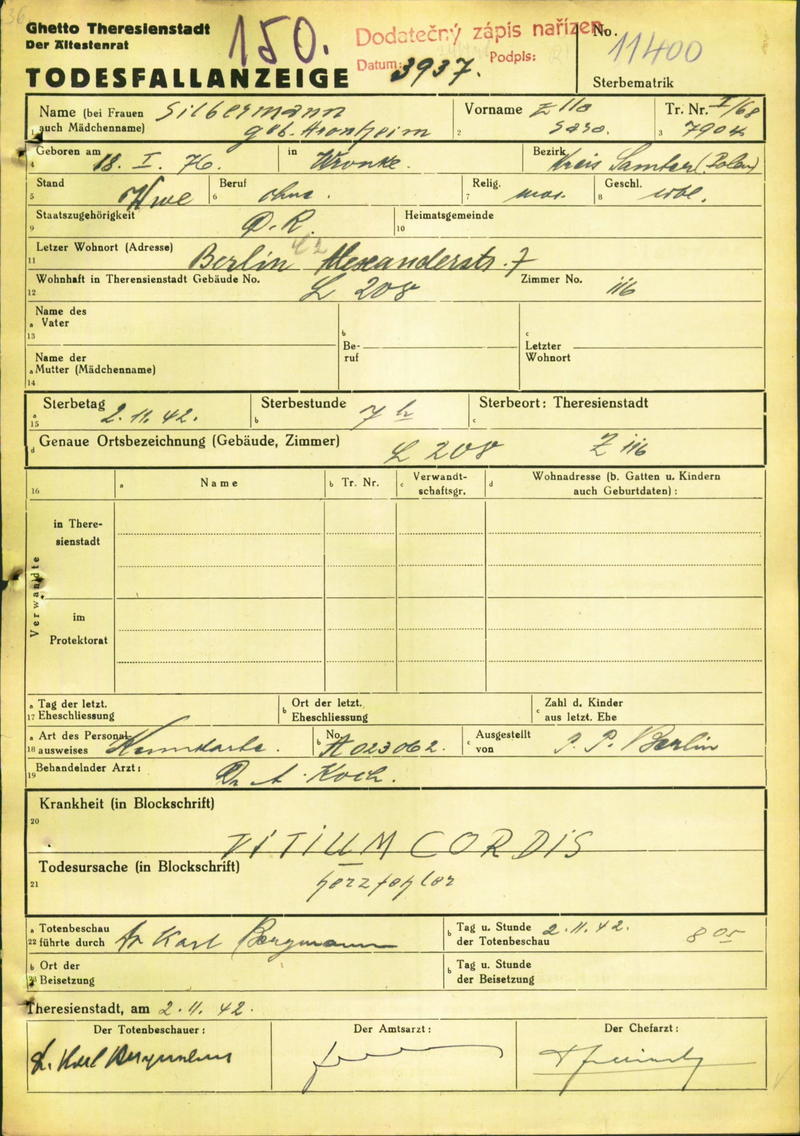 Ghetto Theresienstadt
Der Ältestenrat
TODESFALLANZEIGE
150.
Dodatečný zápis nařízen
Datum: 3937. Podpis:
No. 11400
Sterbematrik
Name (bei Frauen auch Mädchenname) Silbermann
geb. Aronheim
1
Vorname Ella
Sara.
2
Tr. Nr. I/68
3 7904
Geboren am 18. I. 76. in Wronke. Bezirk Kreis Samter (Polen)
4
Stand Wwe Beruf ohne. Relig. mos. Geschl. wbl.
5 6 7 8
Staatszugehörigkeit D.R. Heimatsgemeinde
9 10
Letzer Wohnort (Adresse) Berlin C2 Alexanderstr. 7
11
Wohnhaft in Therensienstadt Gebäude No. L 208 Zimmer No. 116
12
Name des
a Vater
13
b Beruf
c Letzter Wohnort
Name der
a Mutter (Mädchenname)
14
a Sterbetag 2.11.42. b Sterbestunde 7 h c Sterbeort: Theresienstadt
15
d Genaue Ortsbezeichnung (Gebäude, Zimmer) L 208 Z 116
16 a Name b Tr. Nr. c Verwandtschaftsgr. d Wohnadresse (b. Gatten u. Kindern auch Geburtdaten):
Verwandte
in Theresienstadt
im Protektorat
a Tag der letzt. b Ort der letzt. c Zahl d. Kinder
17 Eheschliessung Eheschliessung aus letzt. Ehe
a Art des Personal- Kennkarte. b No. A023062. c Ausgestellt von P. P. Berlin
18 ausweises
Behandelnder Arzt: Dr A. Koch.
19
Krankheit (in Blockschrift)
20
VITIUM CORDIS
Todesursache (in Blockschrift)
21 Herzfehler
a Totenbeschau b Tag u. Stunde 2.11.42. 8 05
22 führte durch Dr Karl Bergmann der Totenbeschau
b Ort der b Tag u. Stunde
Beisetzung der Beisetzung
Theresienstadt, am 2.11.42.
Der Totenbeschauer: Der Amtsarzt: Der Chefarzt:
Dr. Karl Bergmann